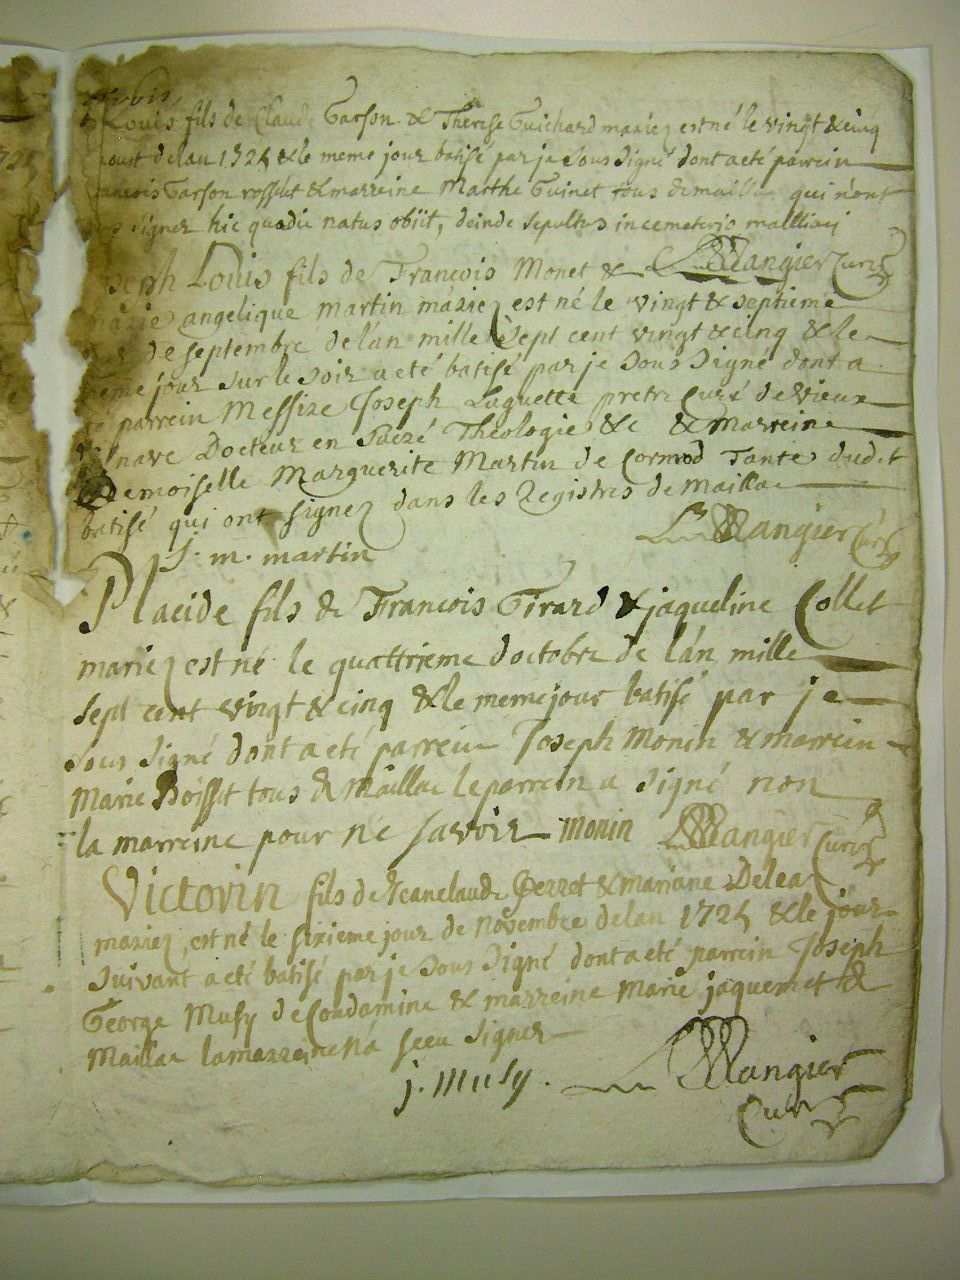 Louis fils de Claude Garson & Therese Guichard mariez est né le vingt & cinq
aoust de lan 1725 & le meme jour batisé par je sous signé dont a eté parrein
francois Garson rossut & marreine Marthe Guinet tous de maillac qui n'ont
signer hic quadie natus obiit, deinde sepultus in cemeterio malliaci
Joseph Louis fils de Francois Monet & Mangier Curé
marie angelique martin mariez est né le vingt & septieme
de septembre de lán mille sept cent vingt & cinq & le
meme jour sur le soir a eté batisé par je sous signé dont a
parrein Messire Joseph Laguette pretre Curé de vieux
Docteur en Sacré Theologie &c & marreine
Demoiselle Marguerite Martin de Cormod Tante dudit
batisé qui ont signez dans les Registres de Maillac
Mangier Curé
J. m. martin
Placide fils de Francois Girard & jaqueline Collet
mariez est né le quattrieme doctobre de lán mille
sept cent vingt & cinq & le meme jour batisé par je
sous signé dont a eté parrein Joseph Monin & marrein
Marie Boisset tous de Maillac le parrein a signé non
la marreine pour né savoir monin Mangier Curé
Victorin fils de Jeanclaude Perret & mariane Delea
mariez, est né le sixieme jour de Novembre de lan 1725 & le jour
suivant a eté batisé par je sous signé dont a eté parrein Joseph
George Musy de Condamine & marreine Marie jaquemet de
Maillac la marreine ná sceu signer
j. Musy. Mangier
Curé